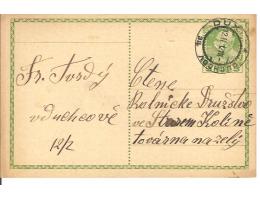 DUX
Fr. Tvrdý
v Duchcově
12/2
Ctěne
Rolnicke Družstvo
ve Starem Kolíně
továrna na zelý